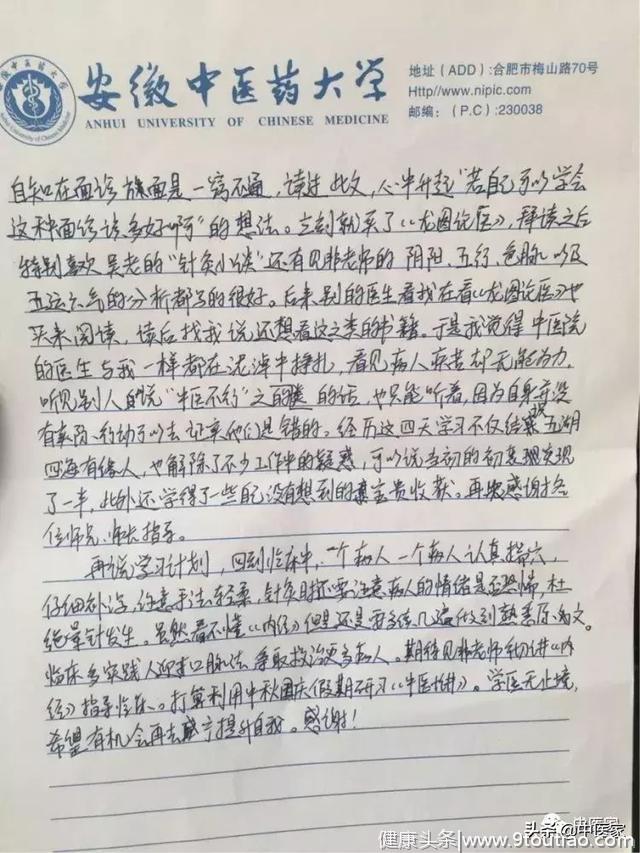 安徽中医药大学
ANHUI UNIVERSITY OF CHINESE MEDICINE
地址（ADD）:合肥市梅山路70号
Http//www.nipic.com
邮编：（P.C）:230038
自知在面诊方面是一窍不通，读过此文，心中升起“若自己可以学会
这种面诊该多好啊”的想法。立刻就买了《龙图论医》，拜读之后
特别喜欢吴老的“针灸小谈”还有见非老师的阴阳、五行、色脉以及
五运六气的分析都写的很好。后来别的医生看我在看《龙图论医》也
买来阅读，读后找我说还想看这之类的书籍。于是我觉得中医院
的医生与我一样都在泥潭中挣扎，看见病人疾苦却无能为力，
听见别人的说“中医不行”之的话，也只能听着，因为自身并没
有实际行动可以去证实他们是错的。经历这四天学习不仅结识五湖
四海有缘人，也解除了不少工作中的疑惑，可以说当初的初衷现实现
了一半，此外还学得了一些自己没有想到的宝贵收获。再次感谢各
位师兄、师长指导。
再说学习计划，回到临床中，一个病人一个病人认真揣穴，
仔细针刺，注意手法轻柔，针灸时还要注意病人的情绪是否恐怖，杜
绝晕针发生。虽然看不懂《内经》但是还是要多读几遍做到熟悉原文。
临床多实践人迎寸口脉法，争取救治更多病人。期待见非老师细讲《内
经》指导临床。打算利用中秋国庆假期研习《中医讲》。学医无止境，
希望有机会再去提升自我。感谢！
头条@中医家
健康头条|www.9toutiao.com